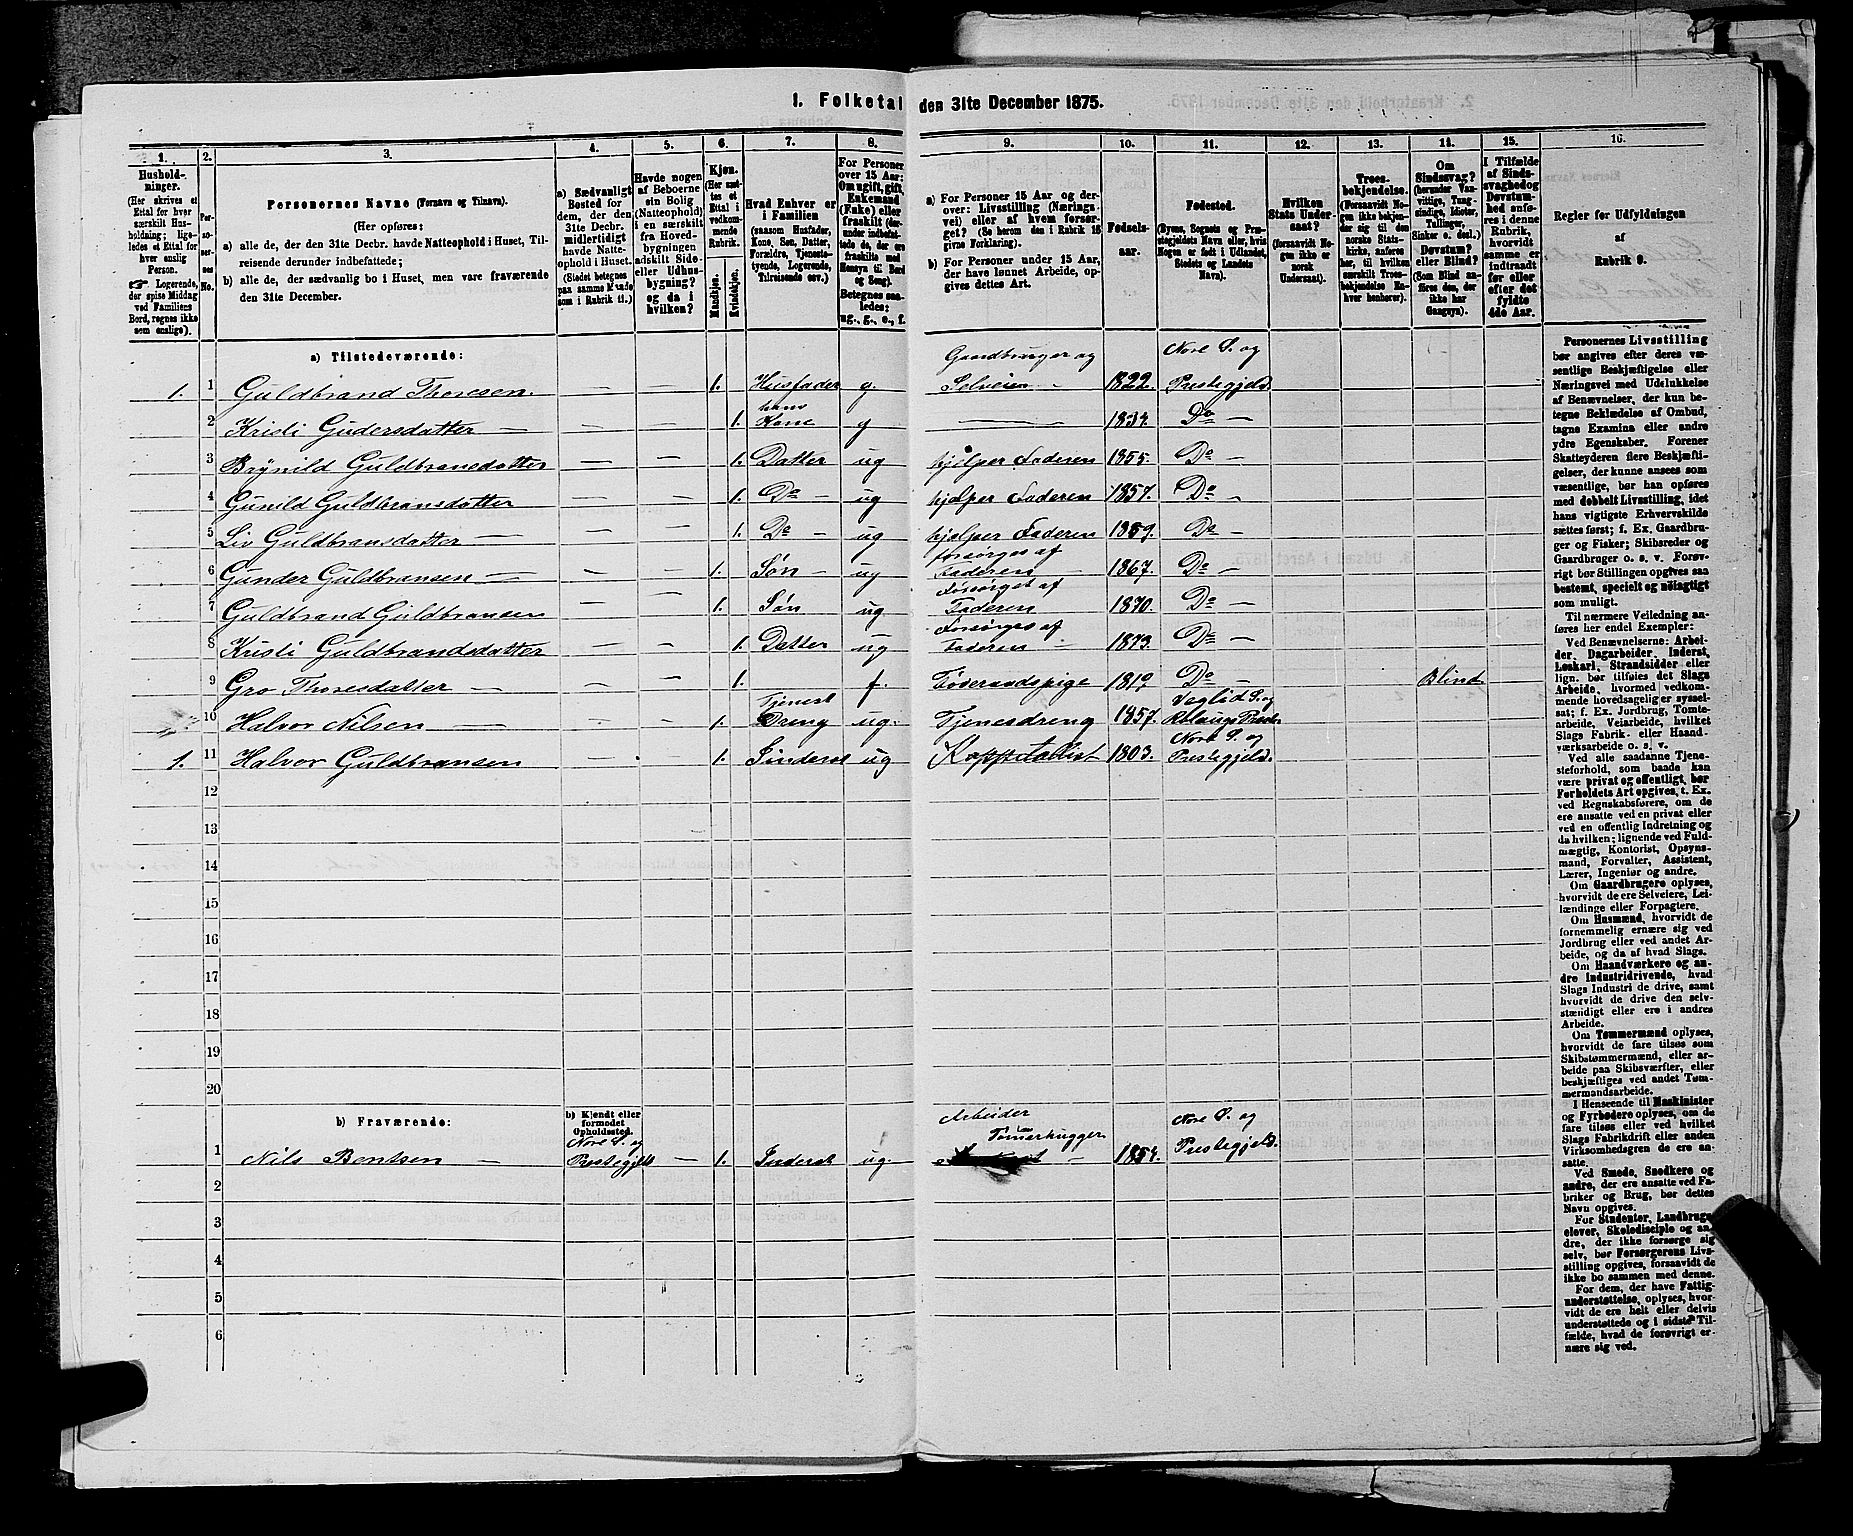 1. Folketal den 31te December 1875.
1. 2. 3. 4. 5. 6. 7. 8. 9. 10. 11. 12. 13. 14. 15. 16.
Hushold-
ninger.
(Her skrives et
Ettal for hver
særskilt Hus-
holdning; lige-
ledes et Ettal for
hver enslig
Person.
☞ Logerende,
der spise Middag
ved Familiens
Bord, regnes ikke
som enslige).
Per-
so-
ner-
nes
No.
Personernes Navne (Fornavn og Tilnavn).
(Her opføres:
a) alle de, der den 31te Decbr. havde Natteophold i Huset, Til-
reisende derunder indbefattede;
b) alle de, der sædvanlig bo i Huset, men vare fraværende
den 31te December.
a) Sædvanligt
Bosted for
dem, der den
31te Decbr.
midlertidigt
havde Natte-
ophold i Huset.
(Stedet betegnes
paa samme Maade
som i Rubrik 11.)
Havde nogen
af Beboerne
sin Bolig
(Natteophold)
i en særskilt
fra Hoved-
bygningen
adskilt Side-
eller Udhus-
bygning?
og da i
hvilken?
Kjøn.
(Her sæt-
tes et
Ettal i
vedkom-
mende
Rubrik.
Mandkjøn.
Kvindekjøn.
Hvad Enhver er
i Familien
(saasom Husfader,
Kone, Søn, Datter,
Forældre, Tjeneste-
tyende, Logerende,
Tilreisende osv.)
For Personer
over 15 Aar:
Om ugift, gift,
Enkemand
(Enke) eller
fraskilt (der-
under indbefat-
tede de, der ere
fraskilte med
Hensyn til Bord
og Seng).
Betegnes saa-
ledes:
ug., g., e., f.
a) For Personer 15 Aar og der-
over: Livsstilling (Nærings-
vei) eller af hvem forsør-
get? (Se herom den i Rubrik 16
givne Forklaring).
b) For Personer under 15 Aar,
der have lønnet Arbeide, op-
gives dettes Art.
Fødsels-
aar.
Fødested.
(Byens, Sognets og Præ-
stegjeldets Navn eller, hvis
Nogen er født i Udlandet,
Stedets og Landets
Navn).
Hvilken
Stats Under-
saat?
(forsaavidt No-
gen ikke er
norsk
Undersaat).
Troes-
bekjendelse.
(Forsaavidt No-
gen ikke bekjen-
der sig til den
norske Stats-
kirke, anføres
her, til hvilken
særskilt Troes-
bekjendelse En-
hver henhører).
Om
Sindssvag?
(herunder Van-
vittige, Tung-
sindige, Idioter,
Tullinger,
Sinker o. desl.)
Døvstum?
eller Blind?
(Som Blind an-
føres den, der
ikke har
Gangsyn).
I Tilfælde
af Sinds-
svaghed og
Døvstum-
hed anføres
i denne
Rubrik,
hvorvidt
samme er
indtraadt
før eller
efter det
fyldte
4de Aar.
Regler for Udfyldningen
af
Rubrik 9.
a) Tilstedeværende:
Gaardbruger og Nore S. og
1. 1 Guldbrand Thoresen. — — 1. Husfader g. Selveier — 1822. Prestegjeld.
hans
2 Kristi Gudersdatter — — 1. Kone g — 1834. Do —
3 Brynild Guldbransdatter — — 1. Datter ug hjælper Faderen 1855. Do —
4 Gunild Guldbransdatter — — 1. Do — ug hjælper Faderen 1857. Do —
5 Liv Guldbransdatter — — — 1. Do — ug hjælper Faderen 1859. Do —
forsørges af
6 Gunder Guldbransen — — — 1. Søn — ug Faderen — 1867. Do —
Forsørget af
7 Guldbrand Guldbransen — — 1. Søn ug Faderen 1870. Do —
Forsørges af
8 Kristi Guldbrandsdatter — — 1. Datter ug Faderen — 1873. Do —
9 Gro Thoresdatter — — — 1. f. Føderaadspige 1819 Do — Blind
Tjenest Veglid S. og
10 Halvor Nilsen — — — 1. Dreng ug. Tjenesdreng 1857.
Nore S. og
1. 11 Halvor Guldbransen — — 1. Inderst ug Kappitalist 1803. Prestegjeld.
12
13
14
15
16
17
18
19
20
b) Fraværende:
b) Kjendt eller
formodet
Opholdssted.
Nore S. og Arbeider Nore S. og
Tømerhugger
1 Nils Bentsen — Prestegjeld — 1. Inderst ug. — 1854. Prestegjeld.
2
3
4
5
6
Personernes Livsstilling
bør angives efter deres væ-
sentlige Beskjæftigelse eller
Næringsvei med Udelukkelse
af Benævnelser, der kun be-
tegne Beklædelse af Ombud,
tagne Examina eller andre
ydre Egenskaber. Forener
Skatteyderen flere Beskjæfti-
gelser, der kunne ansees som
væsentlige, bør han opføres
med dobbelt Livsstilling, idet
hans vigtigste Erhvervskilde
sættes først; f. Ex. Gaardbru-
ger og Fisker; Skibsreder og
Gaardbruger o. s. v. Forøv-
rigt bør Stillingen opgives saa
bestemt, specielt og nøiagtigt
som muligt.
Til nærmere Veiledning an-
føres her endel Exempler:
Ved Benævnelserne: Arbei-
der, Dagarbeider, Inderst,
Løskarl, Strandsidder eller
lign. bør tilføies det Slags
Arbeide, hvormed vedkom-
mende hovedsagelig er syssel-
sat; f. Ex. Jordbrug, Tomte-
arbeide, Veiarbeide, hvilket
Slags Fabrik- eller Haand-
værksarbeide o. s. v.
Ved alle saadanne Tjene-
steforhold, som baade kan
være privat og offentligt, bør
Forholdets Art opgives, t. Ex.
ved Regnskabsførere, om de
ere ansatte ved en privat eller
ved en offentlig Indretning og
da hvilken; lignende ved Fuld-
mægtig, Kontorist, Opsyns-
mand, Forvalter, Assistent,
Lærer, Ingeniør og andre.
Om Gaardbrugere oplyses,
hvorvidt de ere Selveiere, Lei-
lændinge eller Forpagtere.
Om Husmænd, hvorvidt de
fornemmelig ernære sig ved
Jordbrug eller ved andet Ar-
beide, og da af hvad Slags.
Om Haandværkere og an-
dre industridrivende, hvad
Slags Industri de drive, samt
hvorvidt de drive den selv-
stændigt eller ere i andres
Arbeide.
Om Tømmermænd oplyses,
hvorvidt de fare tilsøs som
Skibstømmermænd, eller ar-
beide paa Skibsværfter, eller
beskjæftiges ved andet Tøm-
mermandsarbeide.
I Henseende til Maskinister
og Fyrbødere oplyses, om de
fare tilsøs eller ved hvilket
Slags Fabrikdrift eller anden
Virksomhedsgren de ere an-
satte.
Ved Smede, Snedkere og
andre, der ere ansatte ved Fa-
briker og Brug, bør dettes
Navn opgives.
For Studenter, Landbrugs-
elever, Skoledisciple og an-
dre, der ikke forsørge sig
selv, bør Forsørgerens Livs-
stilling opgives, forsaavidt de
ikke bo sammen med denne.
For dem, der have Fattig-
understøttelse, oplyses, hvor-
vidt de ere helt eller delvis
understøttede og i sidste Til-
fælde, hvad de forøvrigt er-
nære sig ved.